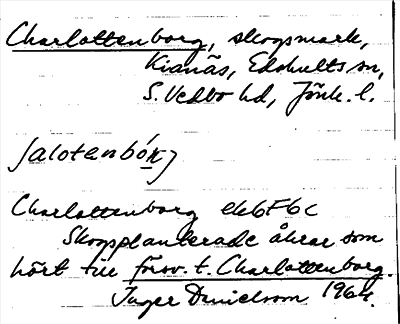 Charlottenborg, skogsmark,
Kianäs, Edshults sn,
S. Vedbo hd, Jönk. l.
Charlottenborg ek6F6c
Skogsplanterade åkrar som
hört till förv. t. Charlottenborg.
Inger Danielsson 1964.